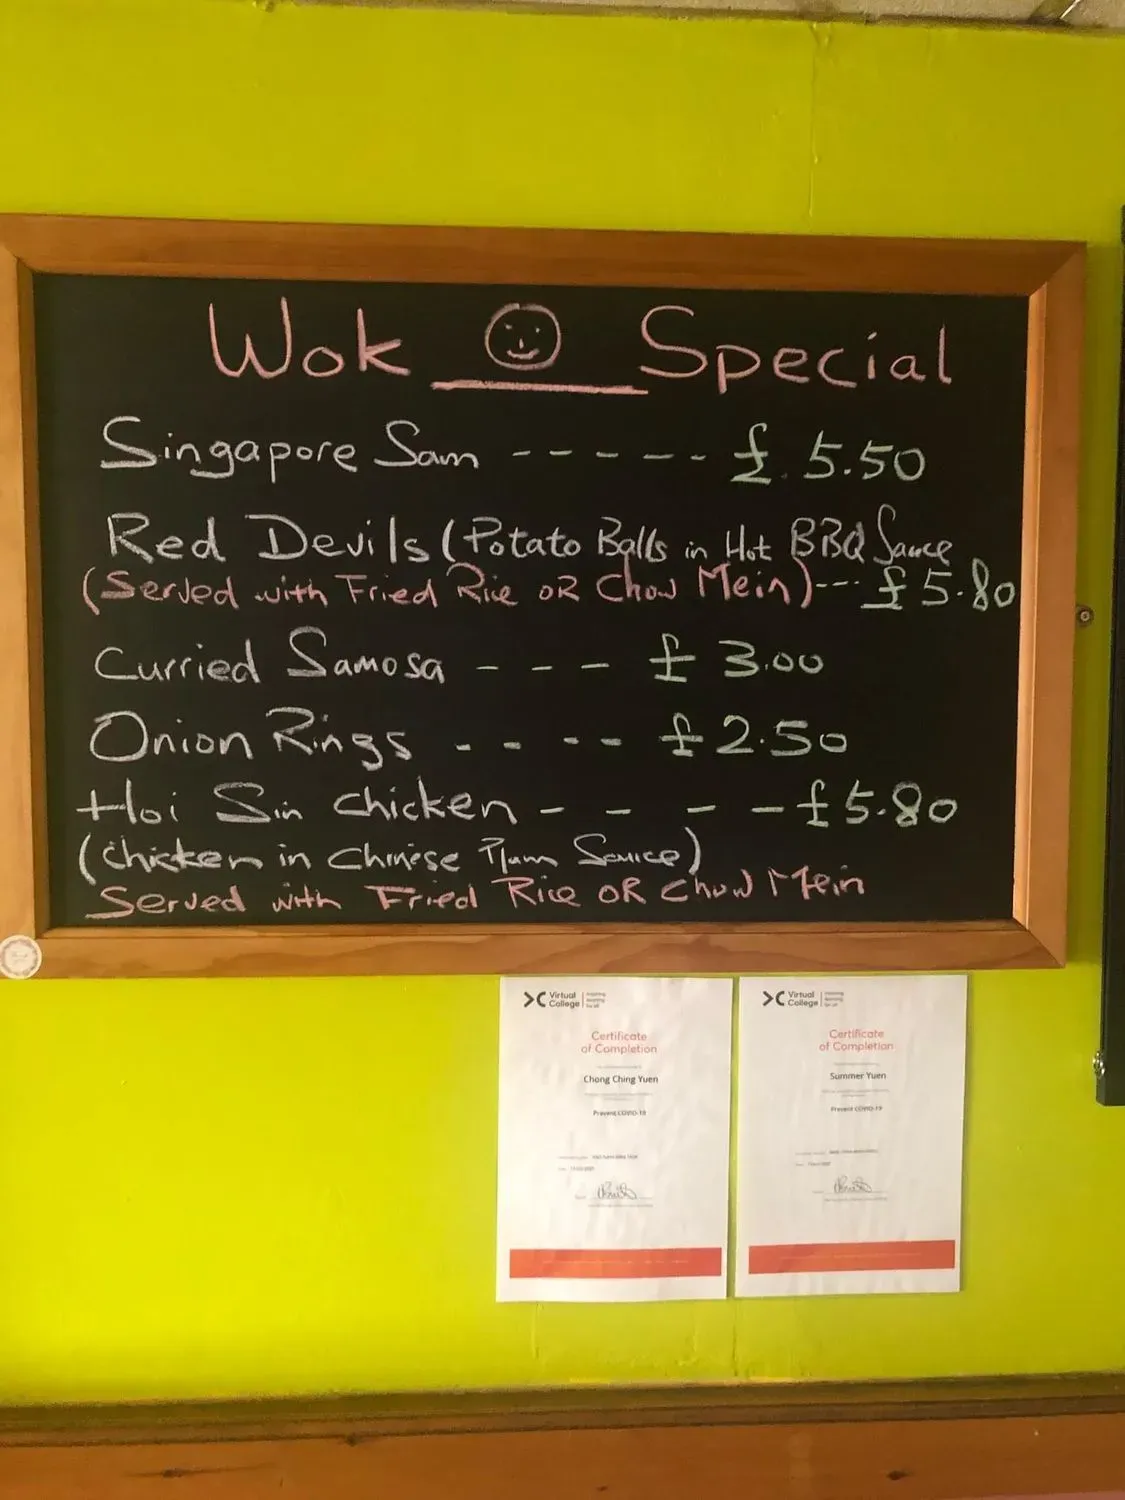 Wok Special
Singapore Sam ----- £.5.50
Red Devils (Potato Balls in Hot BBQ Sauce
(Served with Fried Rice OR Chow Mein)--- £5.80
Curried Samosa --- £3.00
Onion Rings ---- £2.50
Hoi Sin chicken ---- £5.80
(chicken in chinese Plum Sauce)
Served with Fried Rice OR chow Mein
Virtual
College
Certificate
of Completion
Chong Ching Yuen
Prevent COVID-19
Virtual
College
Certificate
of Completion
Summer Yuen
Prevent COVID-19